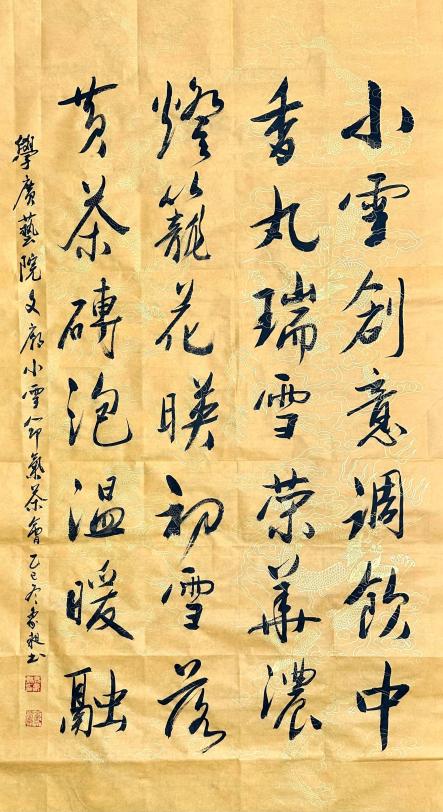 小雪創意調飲中
香丸瑞雪榮華濃
燈籠花暎初雪落
黄茶磚泡温暖融
學廣藝院文廊小雪節氣茶會乙巳冬書於